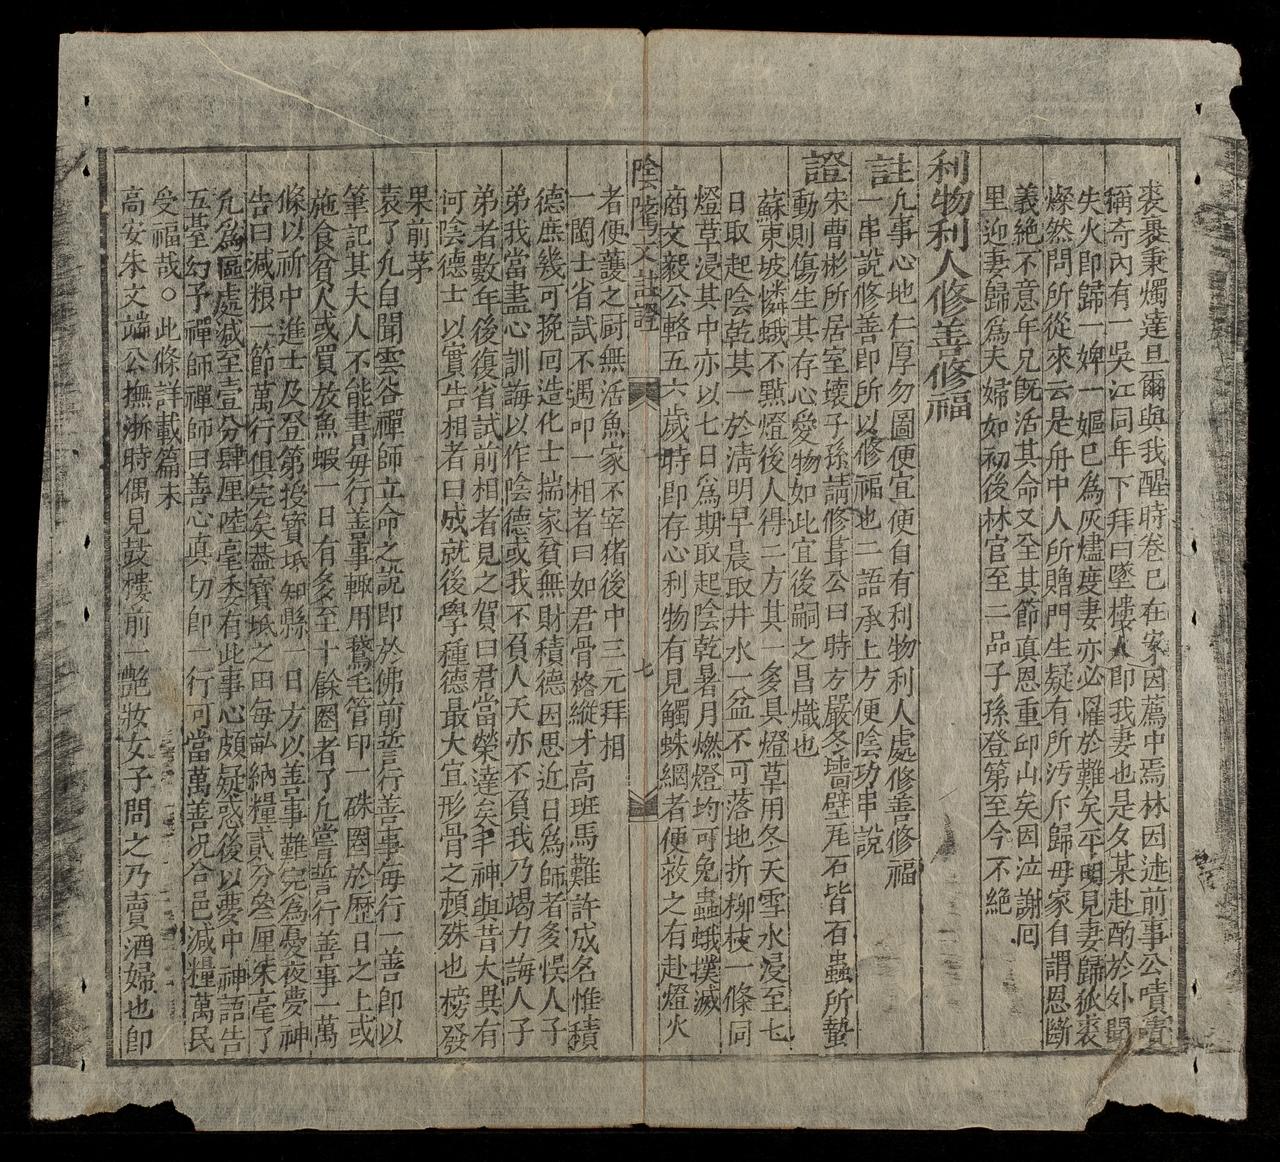 裘裹秉燭達旦爾與我醒時卷已在案因薦中焉林因述前事公嘖嘖
稱奇內有一吳江同年下拜曰墜樓人即我妻也是夕某赴酌於外聞
失火即歸一婢一嫗已為灰燼度妻亦必罹於難矣平明見妻歸狐裘
燦然問所從來云是舟中人所贈門生疑有所汚斥歸母家自謂恩斷
義絕不意年兄既活其命又全其節真恩重邱山矣因泣謝囘
里迎妻歸為夫婦如初後林官至二品子孫登第至今不絕
利物利人修善修福
註凡事心地仁厚勿圖便宜便自有利物利人處修善修福
一串說修善即所以修福也二語承上方便陰功串說
證宋曹彬所居室壞子孫請修葺公曰時方嚴冬墻壁瓦石皆百蟲所蟄
動則傷生其存心愛物如此宜後嗣之昌熾也
蘇東坡憐蛾不點燈後人得二方其一多具燈草用冬天雪水浸至七
日取起陰乾其一於清明早晨取井水一盆不可落地折柳枝一條同
燈草浸其中亦以七日為期取起陰乾暑月燃燈均可免蟲蛾撲滅
商文毅公輅五六歲時即存心利物有見觸蛛網者便救之有赴燈火
陰隲文註證
七
者便護之厨無活魚家不宰猪後中三元拜相
一閩士省試不遇叩一相者曰如君骨格縱才高班馬難許成名惟積
德庶幾可挽回造化士揣家貧無財積德因思近日為師者多悞人子
弟我當盡心訓誨以作陰德或我不負人天亦不負我乃竭力誨人子
弟者數年後復省試前相者見之賀曰君當榮達矣丰神與昔大異有
何陰德士以實告相者曰成就後學種德最大宜形骨之頓殊也榜發
果前茅
袁了凡自聞雲谷禪師立命之說即於佛前誓行善事每行一善即以
筆記其夫人不能書每行善事輙用鵞毛管印一硃圈於歷日之上或
施食貧人或買放魚蝦一日有多至十餘圈者了凡嘗誓行善事一萬
條以祈中進士及登第授寶坻知縣一日方以善事難完為憂夜夢神
告曰減粮一節萬行俱完矣葢寶坻之田每畝納糧貳分叁厘柒毫了
凡為區處減至壹分肆厘陸毫柒有此事心頗疑惑後以夢中神語告
五䑓幻予禪師禪師曰善心真切即一行可當萬善况合邑減糧萬民
受福哉。此條詳載篇末
高安朱文端公撫浙時偶見鼓樓前一艶妝女子問之乃賣酒婦也即